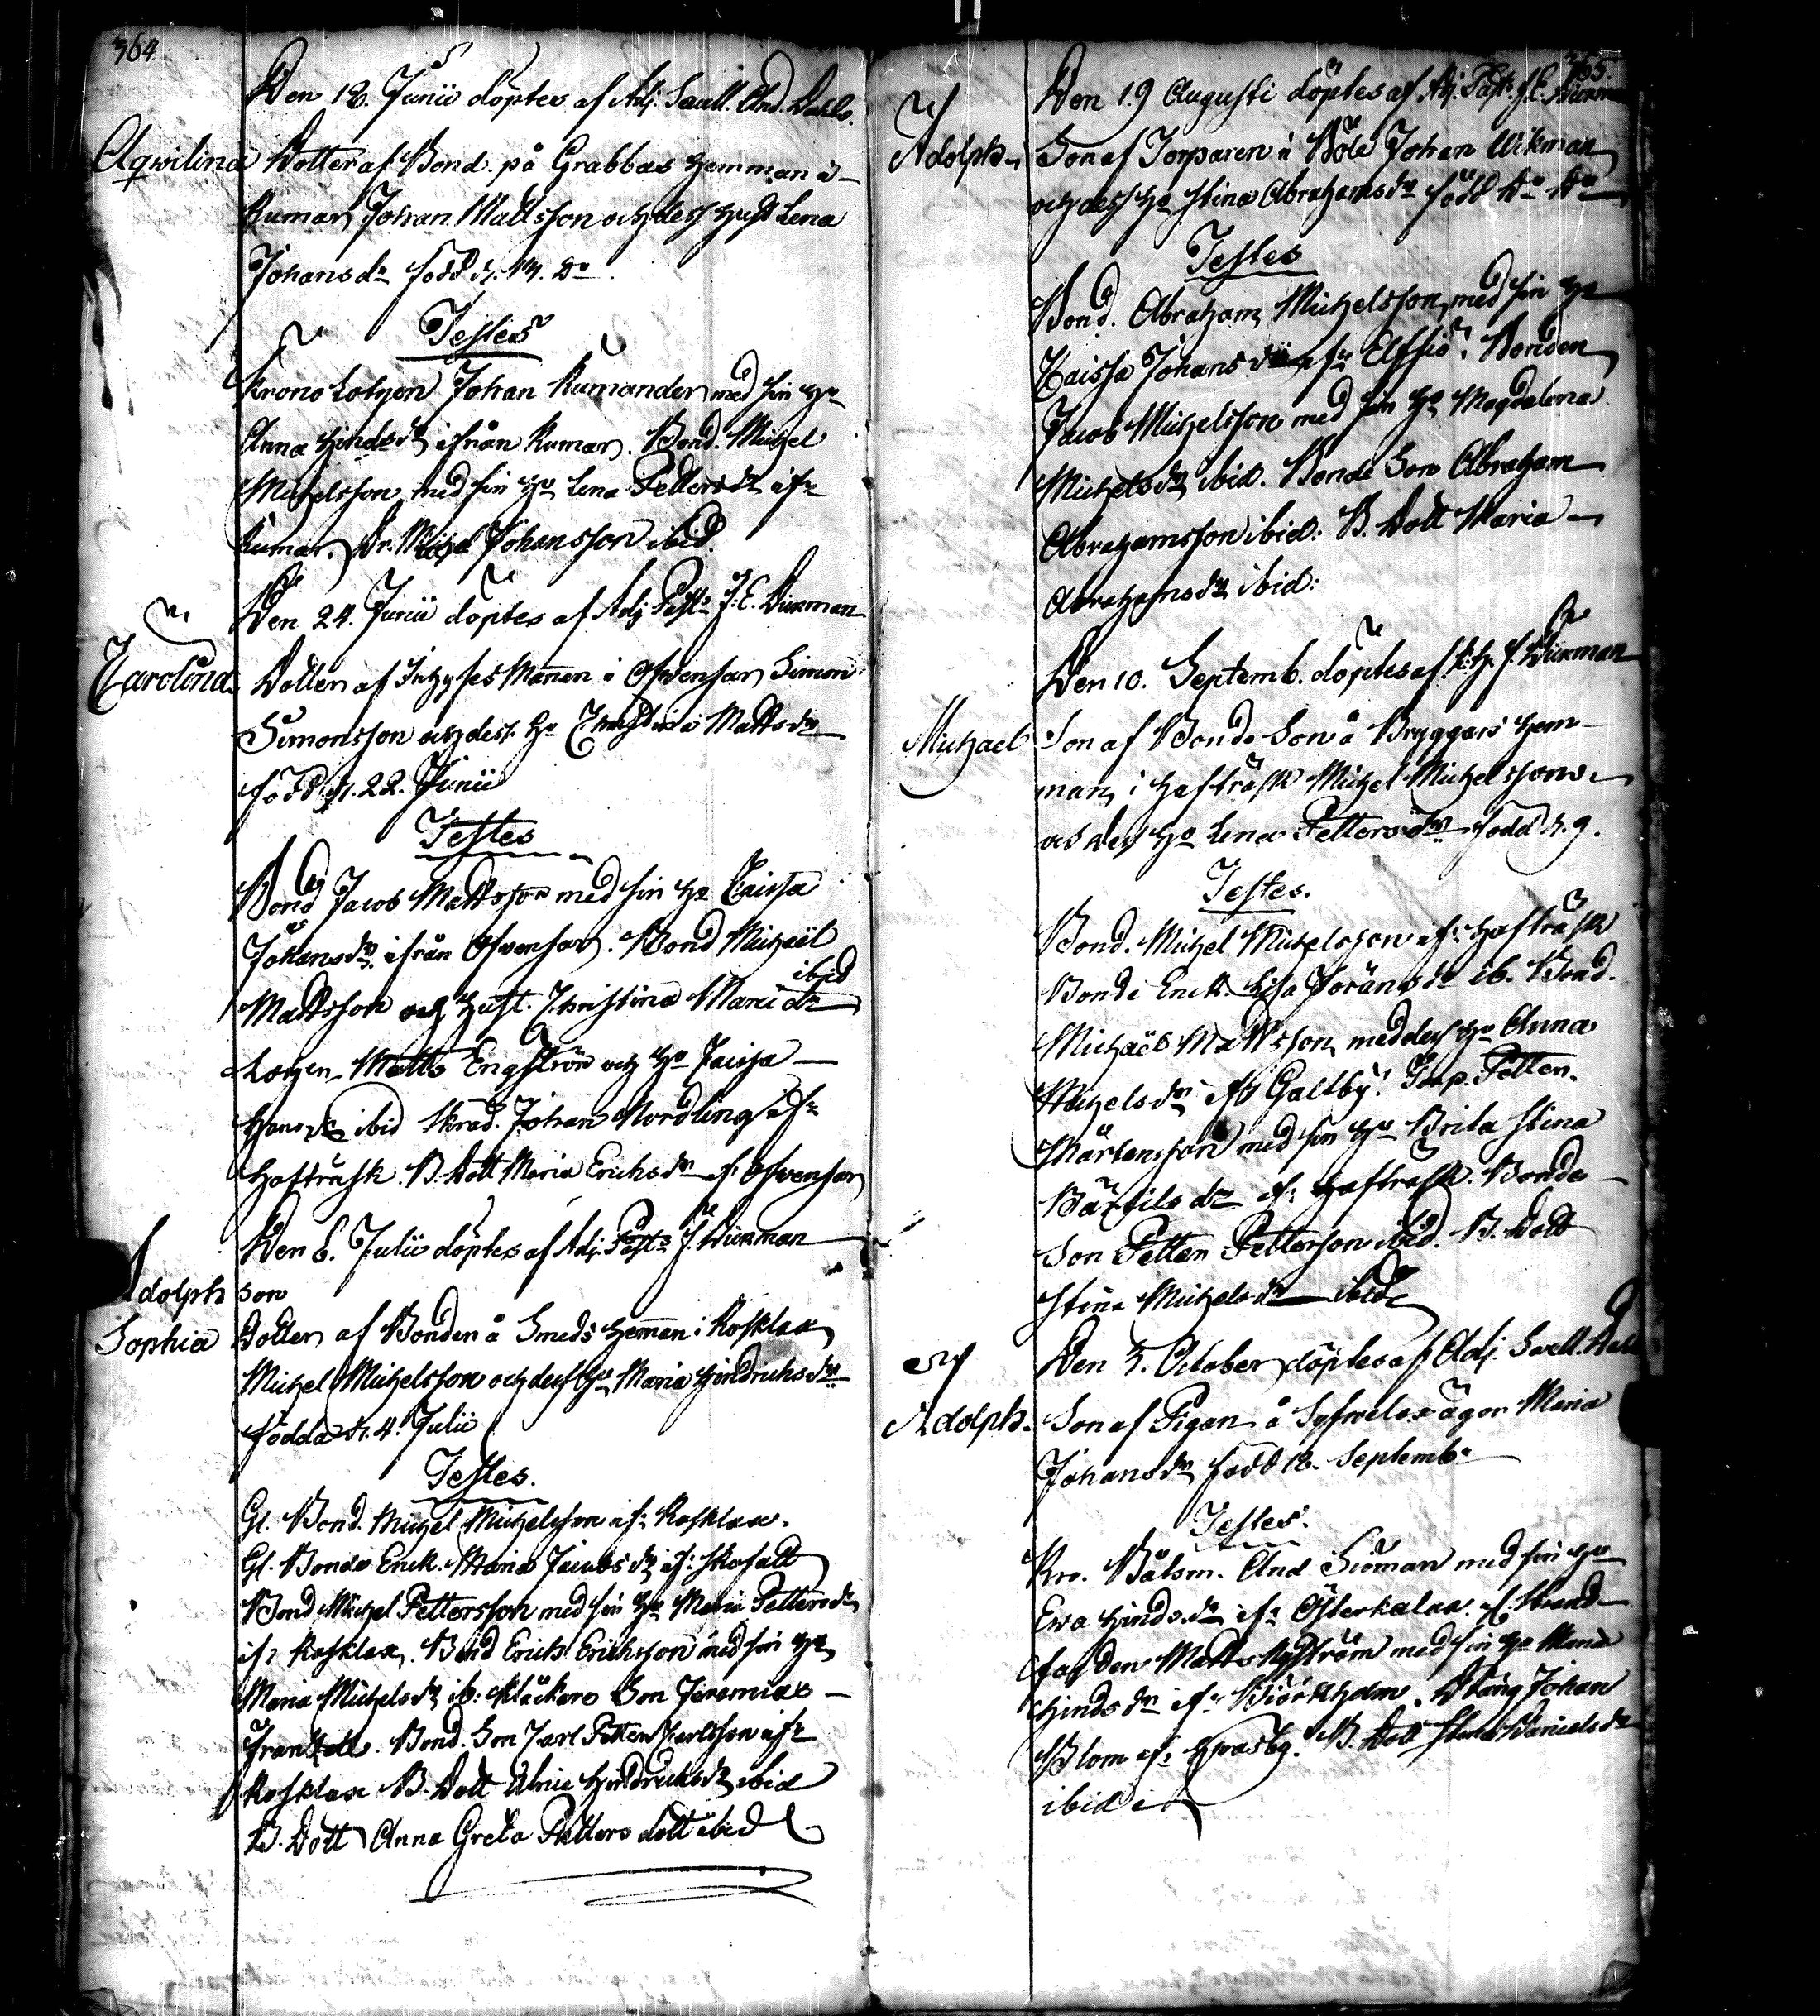 364
Den 18. Junii döptes af Adj. Sacell. And. Dahls.
Aqwilina Dotter af Bond. på Grabbas Hemman i
Rumar Johan Mattsson och dess Hust Lena
Johansdr född d. 17. Do
Testes
Krono Lotsen Johan Rumander med sin Hu
Anna Hindsdr ifrån Rumar. Bond. Michel
Michelsson med sin Hu Lena Pettersdr ifr
Rumar. Dr. Michel Johansson ibid.
Den 24. Junii döptes af Adj. Past: J: E. Wikman
Carolina Dotter af Inhyses Mannen i Ofvensor Simon
Simonsson och dess Hu Christina Mattsdr
född d. 22. Junii
Testes
Bond Jacob Mattsson med sin Hu Caissa
Johansdr ifrån Ofvensor. Bond Michaël
ibid
Mattsson och Hust. Christina Mariædr
Lotzen Matts Engström och Hu Caissa
Hansdr ibid Skräd. Johan Nordling ifr
Hafträsk. B. Dott Maria Erichsdr if. Ofvensor
Den 6. Julii döptes af Adj. Past: J. Wikman
Adolph son
Sophia Dotter af Bonden å Smeds Heman i Rosklax
Michel Michelsson och dess Hu Maria Hindrichsdr
födda d. 4. Julii
Testes.
Gl. Bond. Michel Michelsson if: Rosklax.
Gl. Bonde Enck. Maria Jacobsdr if:
Bond Michel Pettersson med sin Hu Maria Pettersdr
if: Rosklax. Bond Erich Erichsson med sin Hu
Maria Michelsdr ib: Klåckare Son Jeremias
Bond. Son Carl Petter Carlsson ifr
Rosklax B. Dott Hindrichsdr ibid
B. Dott Anna Greta Petters dott ibid
365.
Den 19 Augusti döptes af Adj. Past. J. E. Wikman
Adolph Son af Torparen i Böle Johan Wikman
och dess Hu Stina Abrahamsdr född Do Do
Testes
Bond. Abraham Michelsson med sin Hu
Caissa Johansdr ifr Elfsjö. Bonden
Jacob Michelsson med sin Hu Magdalena
Michelsdr ibid. Bonde Son Abraham
Abrahamsson ibid: B. Dott Maria
Abrahamsdr ibid:
Den 10. Septemb. döptes af J. Wikman
Michael Son af Bonde Son å Bryggars Hem-
man i Hafträsk Michel Michelsson
och dess Hu Lena Pettersdr född d. 9.
Testes.
Bond. Michel Michelsson if: Hafträsk
Bonde Enck. Lisa Göransdr ib. Bond.
Michaël Mattsson med dess Hu Anna
Michelsdr if: Galtby. Torp. Petter
Mårtensson med sin Hu Brita Stina
Bärtilsdr if: Hafträsk. Bonde
Son Petter Petterson ibid. B. Dott
Stina Michelsdr ibid
Den 7. October döptes af Adj. Sacell. Dahl
Adolph. Son af Pigan å Syfvelax ägor Maria
Johansdr född 18. Septemb:
Testes.
Kro. Båtsm. And Siöman med sin Hu
Ewa Hindsdr if: Österkalax. Strand-
fogden Matts Nyström med sin Hu Maria
Hindsdr if: Biörkholm. Dräng Johan
Blom if: B. Dott Stina Danielsdr
ibid